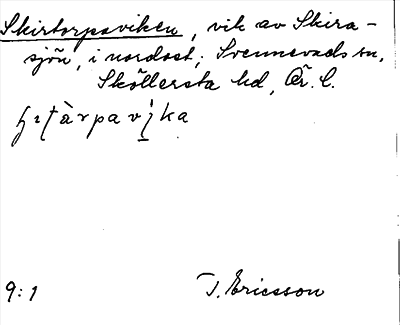 Skirtorpaviken, vik av Skira-
sjön, i nordost; Svennevads sn,
Sköllersta hd, Ör. l.
9:1 T. Ericsson